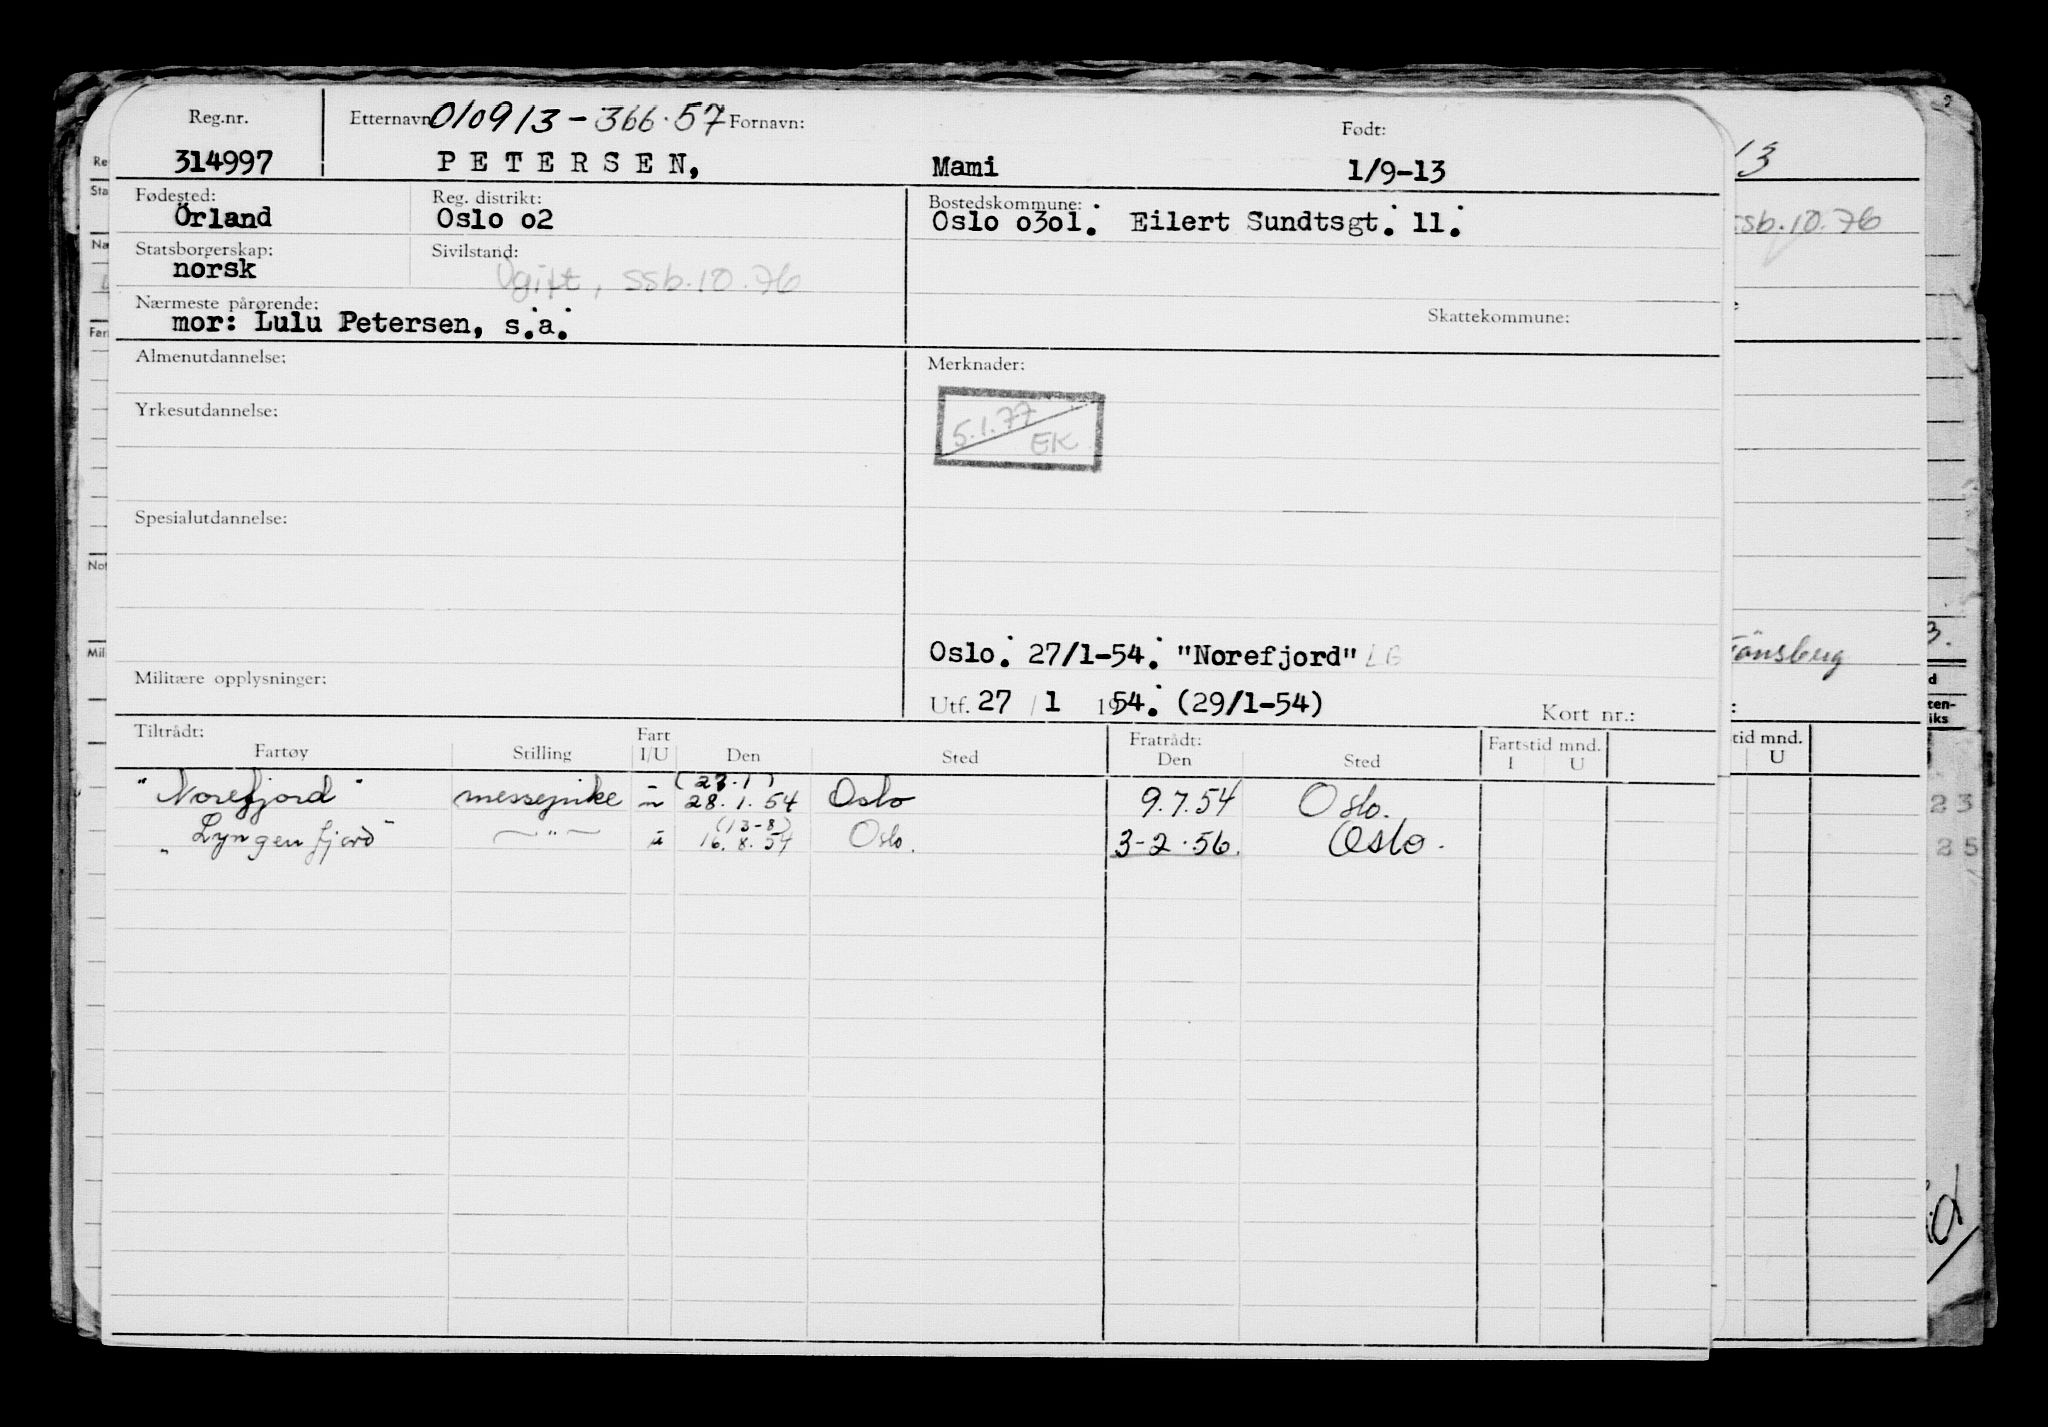 Reg.nr. Etternavn 010913-366.57 Fornavn: Født:
314997 PETERSEN, Mami 1/9-13
Fødested: Reg. distrikt: Bostedskommune:
Örland Oslo o2 Oslo o3o1. Eilert Sundtsgt. 11.
Statsborgerskap: Sivilstand:
norsk Ugift, ssb.10.76
Nærmeste pårørende: Skattekommune:
mor: Lulu Petersen, s.a.
Almenutdannelse: Merknader:
5.1.77
EK
Yrkesutdannelse:
Spesialutdannelse:
Oslo. 27/1-54. "Norefjord" LB
Militære opplysninger:
Utf. 27 / 1 1954. (29/1-54) Kort nr.:
Tiltrådt: Fart Fratrådt: Fartstid mnd.
Fartøy Stilling I/U Den Sted Den Sted I U
(27.1)
"Norefjord" messepike 28.1.54 Oslo 9.7.54 Oslo.
(13-8)
"Lyngenfjord" —"— u 16.8.54 Oslo. 3-2.56. Oslo.
13
ssb.10.76
Tönsberg
tid mnd.
U
Re
Sta
Na
Far
Not
Mil
3.
d
ten-
iks
23
25